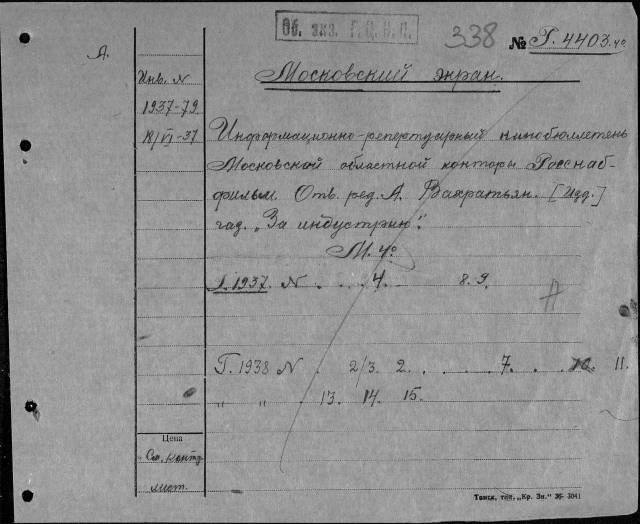 Об. экз. Г.Ц.К.П.
338 № Г. 4403. 4°
А.
Инв. N
Московский экран.
1937-79
18/VI-37
Информационно-репертуарный кинобюллетень
Московской областной конторы Росснаб-
фильм. Отв. ред. А. Вахратьян. [Изд.]
газ. „За индустрию".
М. 4°
Г. 1937. N . . . 4. 8. 9.
Г. 1938 N . 2/3. 2. . . . . 7. . . 10. 11.
" " 13. 14. 15.
Цена
См. контр.
лист.
Томск, тип. „Кр. Зн." 36- 3041